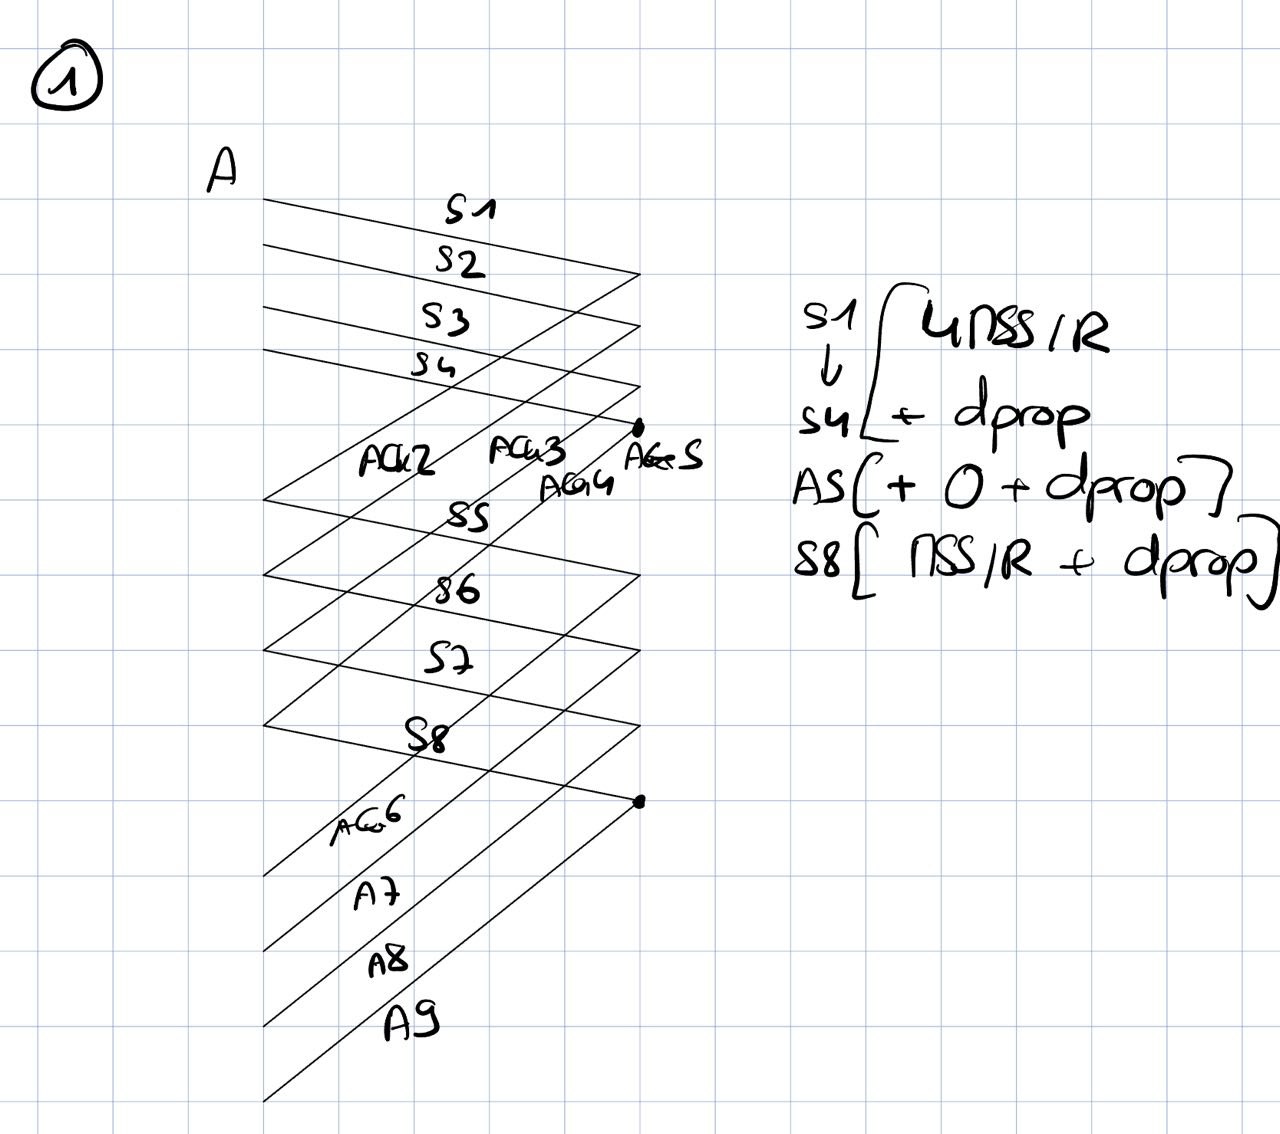 1
A
S1
S2
S3
S4
ACK2
ACK3
ACK4
ACK5
S5
S6
S7
S8
ACK6
A7
A8
A9
S1 ↓ S4 [ 4MSS/R
+ dprop
A5 [ + 0 + dprop ]
S8 [ MSS/R + dprop ]